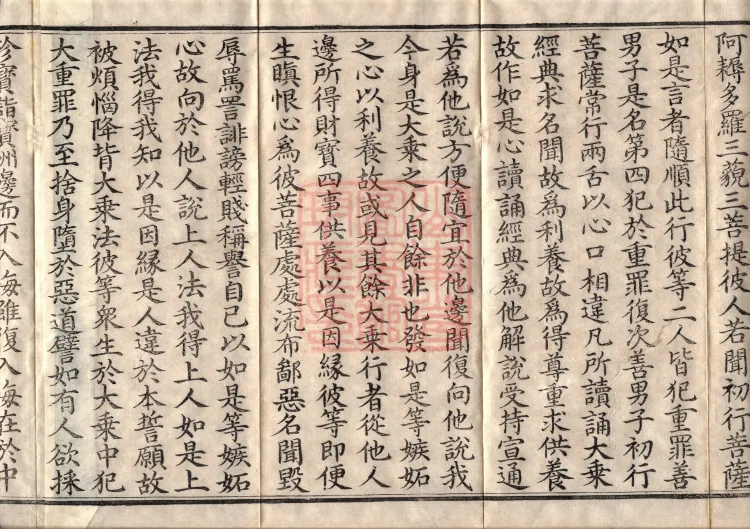 阿耨多羅三藐三菩提彼人若聞初行菩薩
如是言者隨順此行彼等二人皆犯重罪善
男子是名第四犯於重罪復次善男子初行
菩薩常行兩舌以心口相違凡所讀誦大乘
經典求名聞故為利養故為得尊重求供養
故作如是心讀誦經典為他解說受持宣通
若為他說方便隨宜於他邊聞復向他說我
今身是大乘之人自餘非也發如是等嫉妬
之心以利養故或見其餘大乘行者從他人
邊所得財寶四事供養以是因緣彼等即便
生瞋恨心為彼菩薩處處流布鄙惡名聞毀
辱罵詈誹謗輕賤稱譽自己以如是等嫉妬
心故向於他人說上人法我得上人如是上
法我得我知以是因緣是人違於本誓願故
被煩惱降背大乘法彼等衆生於大乘中犯
大重罪乃至捨身墮於惡道譬如有人欲採
珍寶詣寶洲邊而不入海雖復入海在於中